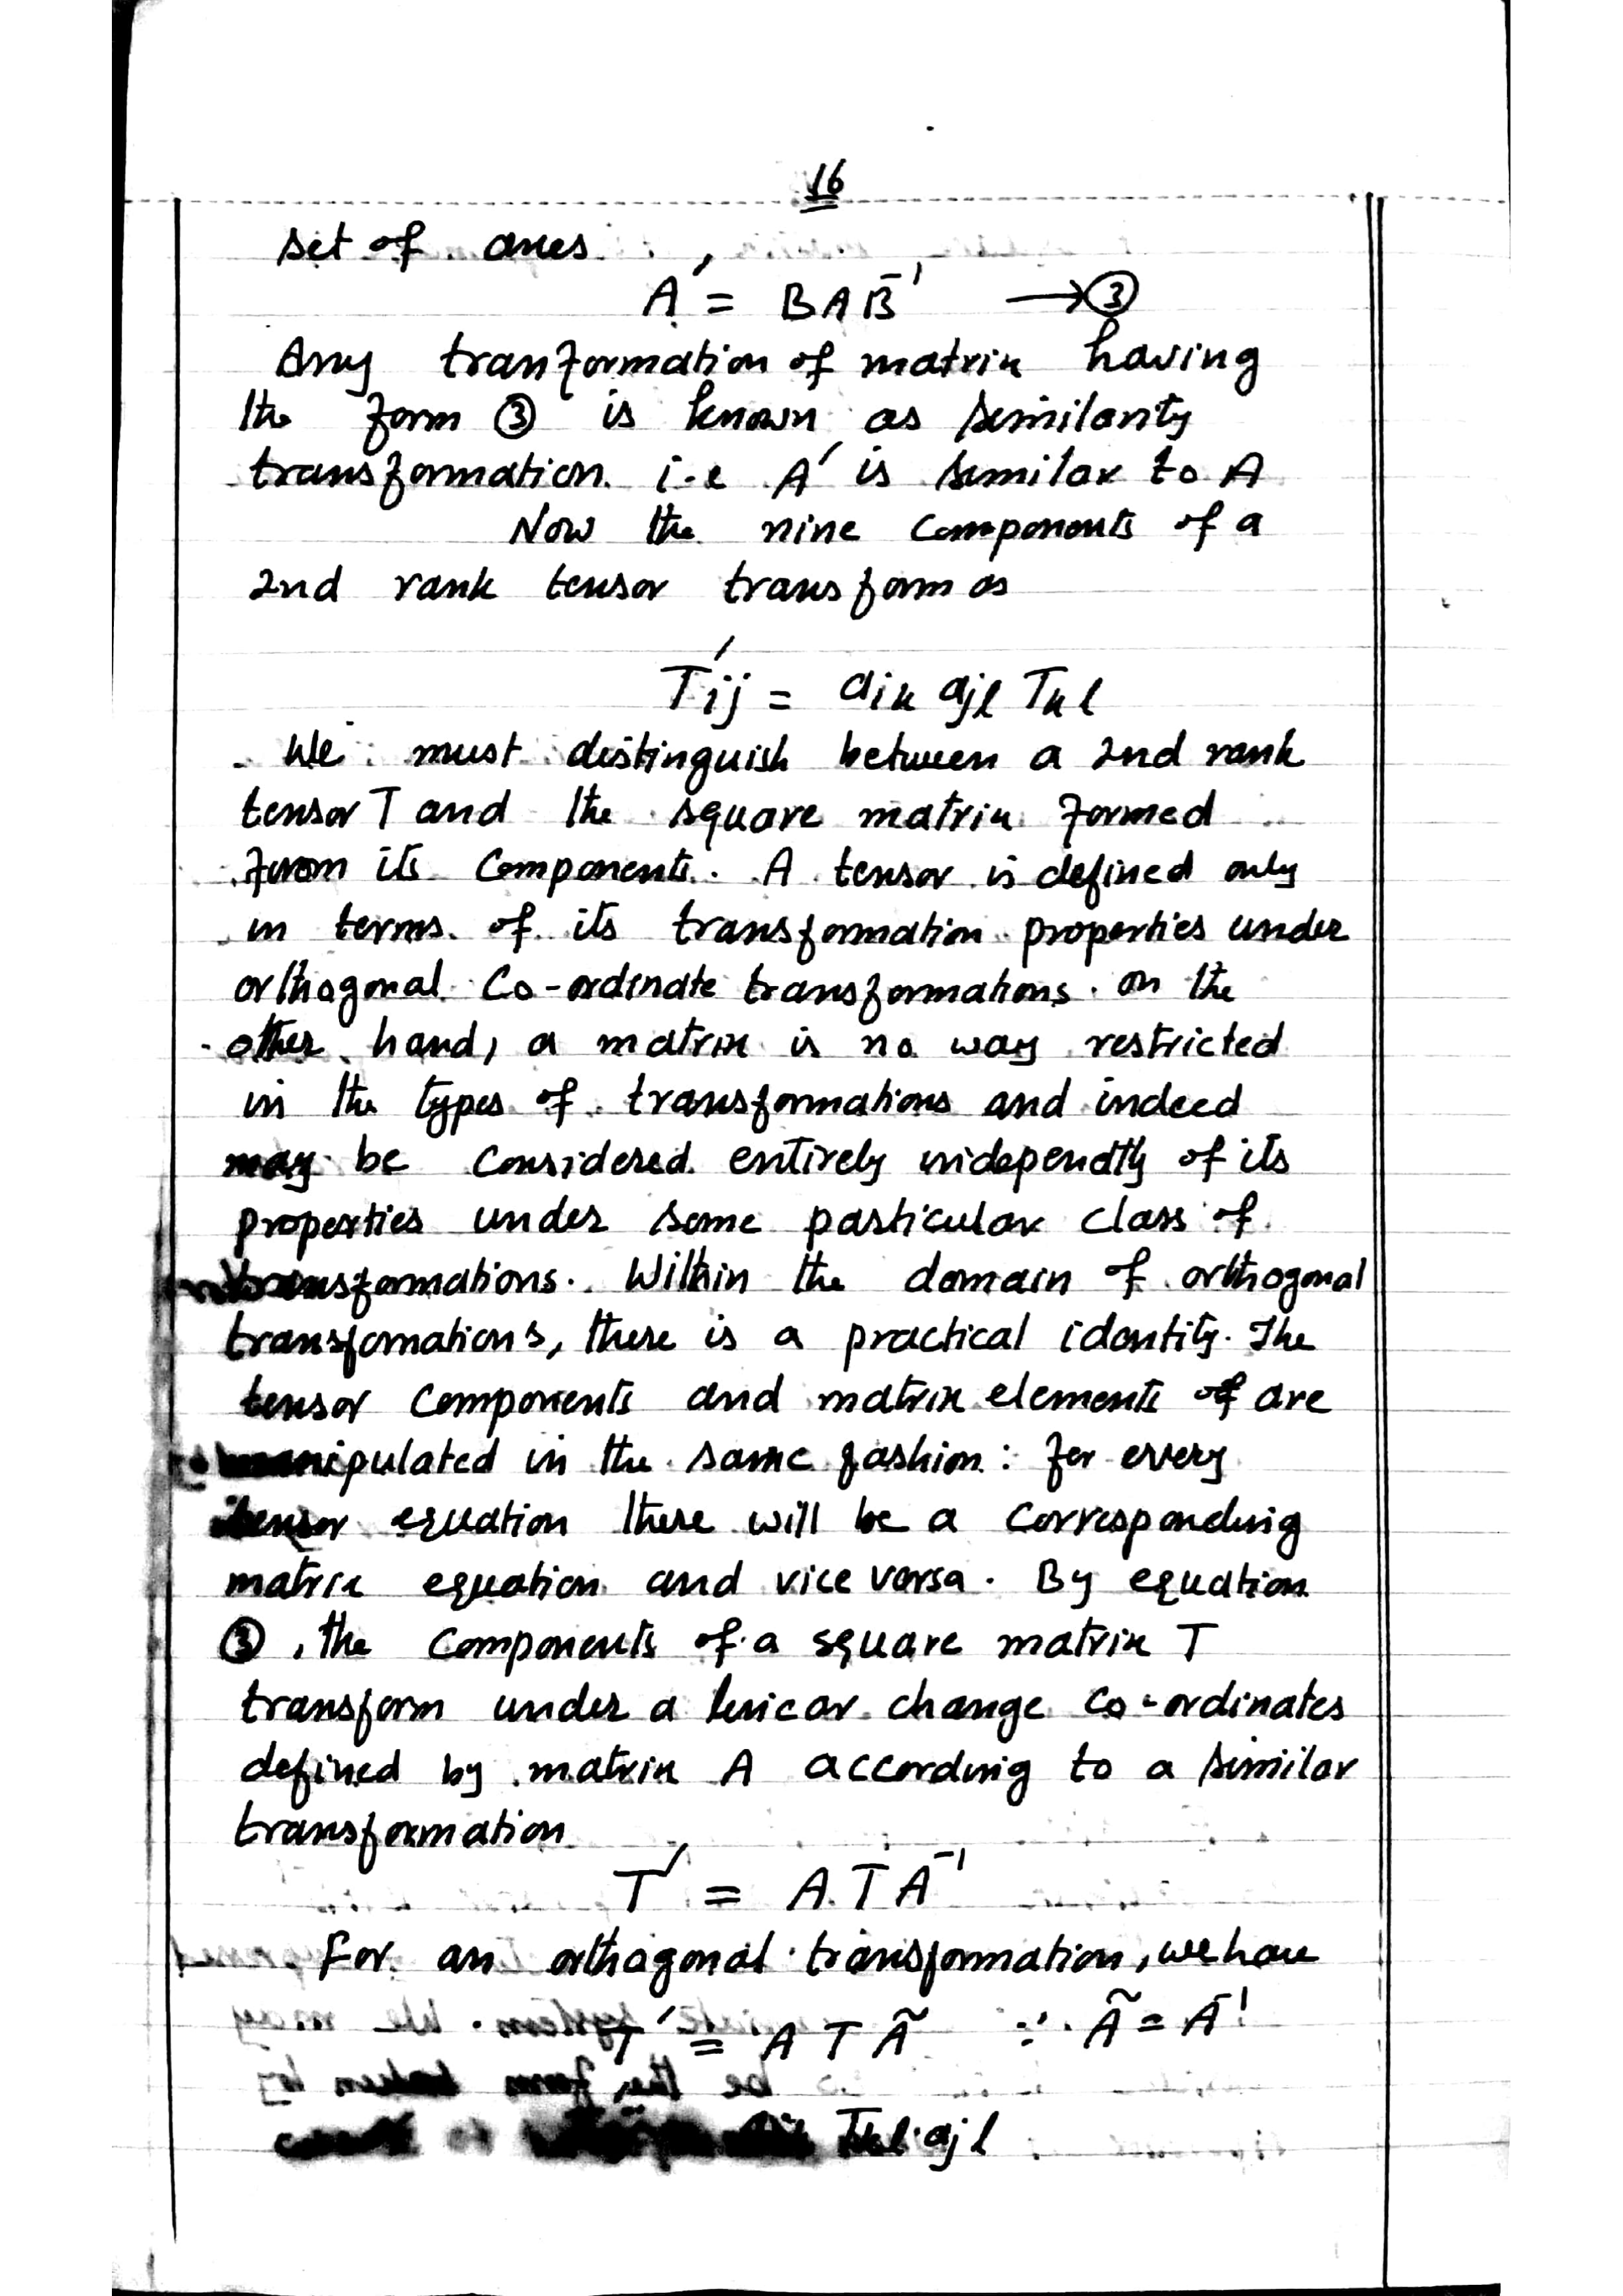 16
set of axes
A′ = BAB⁻¹ → ③
Any tranformation of matrix having
the form ③ is known as similarity
transformation. i.e A′ is similar to A
Now the nine components of a
2nd rank tensor transform as
T′ij = aik ajl Tkl
We must distinguish between a 2nd rank
tensor T and the square matrix formed
from its components. A tensor is defined only
in terms of its transformation properties under
orthogonal Co-ordinate transformations. on the
other hand, a matrix is no way restricted
in the types of transformations and indeed
may be considered entirely independtly of its
properties under some particular class of
transformations. Within the domain of orthogonal
transfomations, there is a practical identity. The
tensor components and matrix elements of are
manipulated in the same fashion : for every
tensor equation there will be a corresponding
matrix equation and vice versa. By equation
③, the components of a square matrix T
transform under a linear change co-ordinates
defined by matrix A according to a similar
transformation
T′ = A.TA⁻¹
For an orthogonal transformation, we have
T′ = A T Ã ∵ Ã = A⁻¹
Tkl ajl